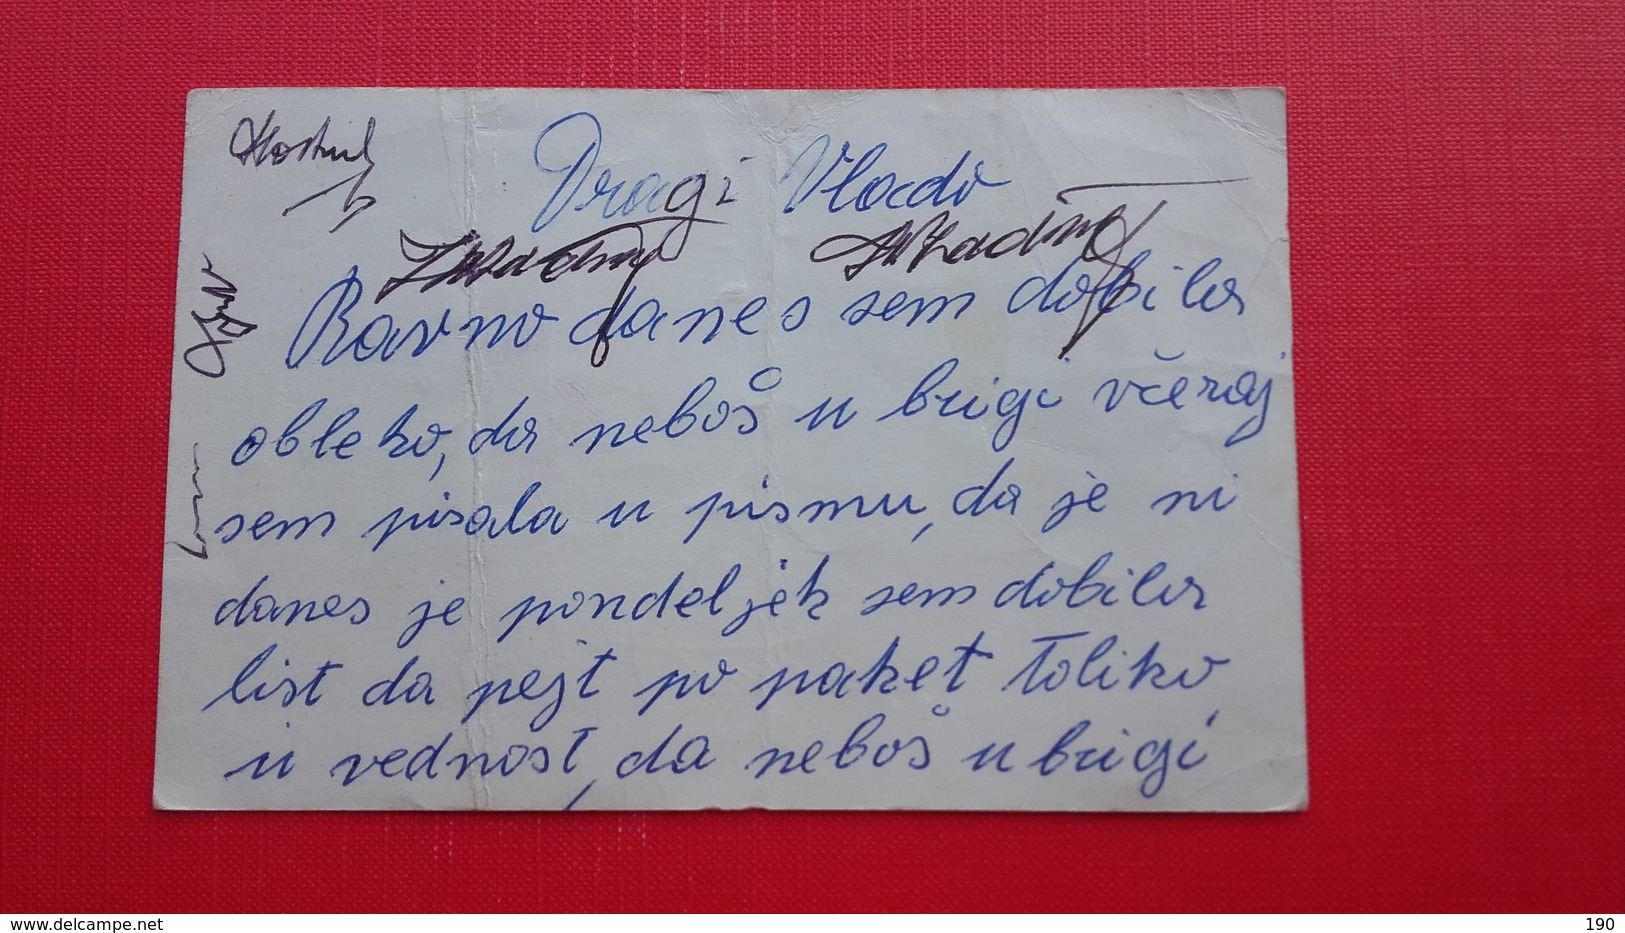 Dragi Vlado
Ravno danes sem dobila
obleko, da neboš u brigi včeraj
sem pisala u pismu, da je ni
danes je pondeljek sem dobila
list da pejt po paket Toliko
u vednost, da neboš u brigi
delcampe.net
190